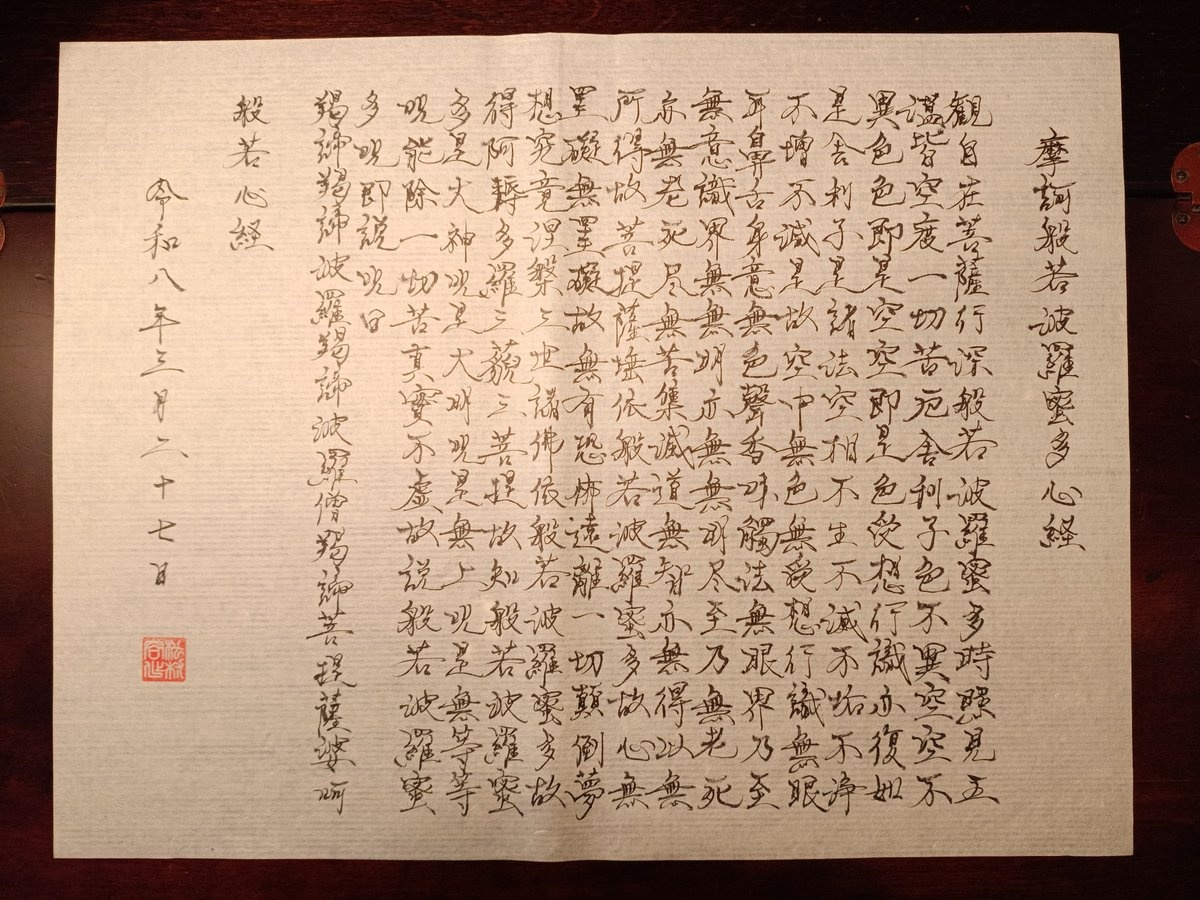 摩訶般若波羅蜜多心経
観自在菩薩行深般若波羅蜜多時照見五
蘊皆空度一切苦厄舎利子色不異空空不
異色色即是空空即是色受想行識亦復如
是舎利子是諸法空相不生不滅不垢不浄
不増不減是故空中無色無受想行識無眼
耳鼻舌身意無色聲香味觸法無眼界乃至
無意識界無無明亦無無明尽至乃無老死
亦無老死尽無苦集滅道無智亦無得以無
所得故菩提薩埵依般若波羅蜜多故心無
罣礙無罣礙故無有恐怖遠離一切顛倒夢
想究竟涅槃三世諸佛依般若波羅蜜多故
得阿耨多羅三藐三菩提故知般若波羅蜜
多是大神呪是大明呪是無上呪是無等等
呪能除一切苦真實不虚故説般若波羅蜜
多呪即説呪曰
羯諦羯諦波羅羯諦波羅僧羯諦菩提薩婆訶
般若心経
令和八年三月二十七日